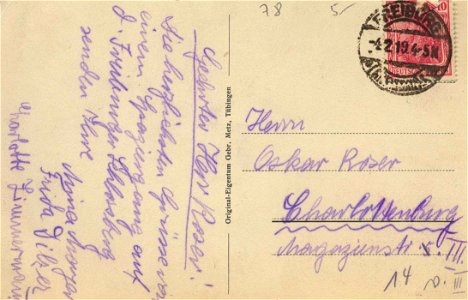 78 5-
FREIBURG
-4.2.19.4-5N
10
Geehrter Herr Roser!
Die herzlichsten Grüsse von
einem Spaziergang auf
d. Freiburger Schlossberg
senden Ihnen
Frida
Charlotte Zimmermann
Original-Eigentum Gebr. Metz, Tübingen
Herrn
Oskar Roser
Charlottenburg
Magazienstr. 5. III.
14 v. III